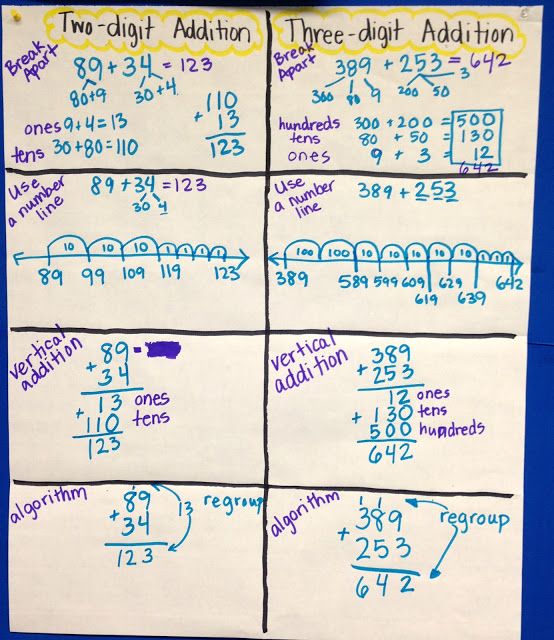 Two-digit Addition
Break Apart
89 + 34 = 123
80+9 30+4
ones 9+4=13
tens 30+80=110
110
+ 13
123
Three-digit Addition
Break Apart
389 + 253 = 642
300 80 9 200 50 3
hundreds 300 + 200 = 500
tens 80 + 50 = 130
ones 9 + 3 = 12
642
Use a number line
89 + 34 = 123
30 4
10 10 10 1 1 1 1
89 99 109 119 123
Use a number line
389 + 253
100 100 10 10 10 10 10 1 1 1
389 589 599 609 619 629 639 642
vertical addition
89 =
+ 34
13 ones
+ 110 tens
123
vertical addition
389
+ 253
12 ones
+ 130 tens
500 hundreds
642
algorithm
1
89
+ 34
123
13 regroup
algorithm
1 1
389
+ 253
642
regroup